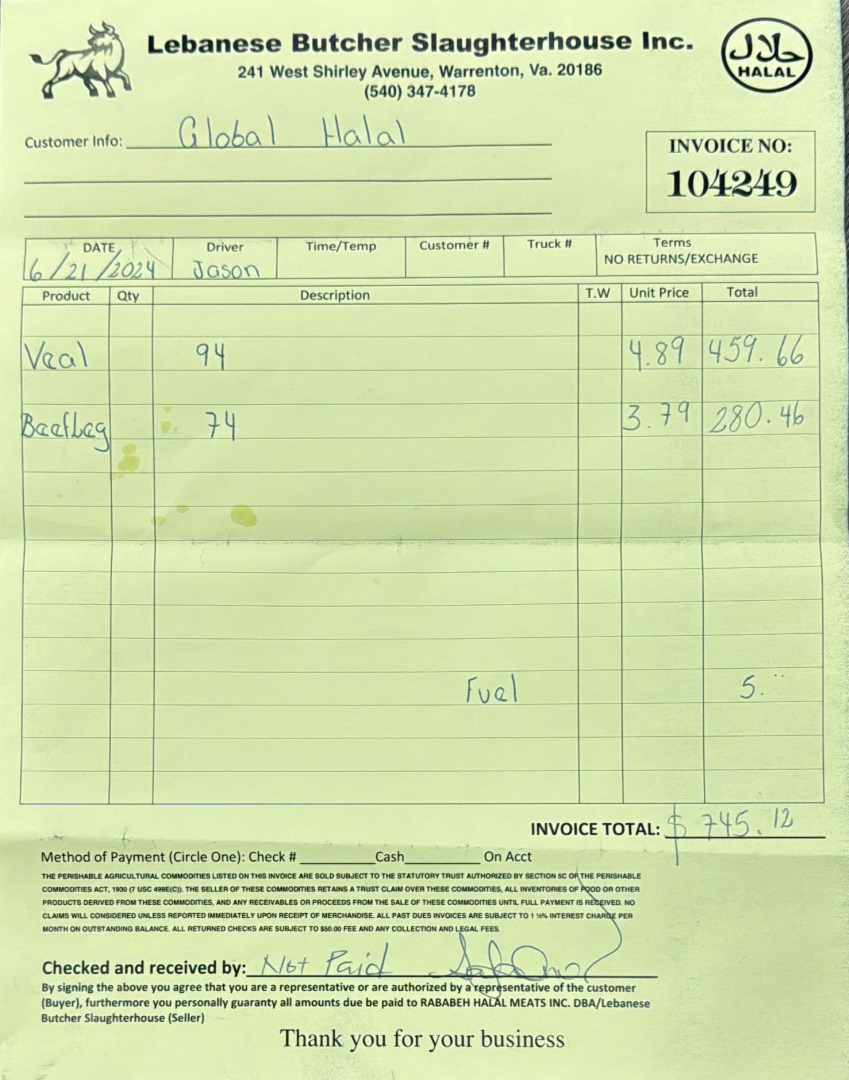 Lebanese Butcher Slaughterhouse Inc.
241 West Shirley Avenue, Warrenton, Va. 20186
(540) 347-4178
حلال
HALAL
Customer Info: Global Halal
INVOICE NO:
104249
DATE Driver Time/Temp Customer # Truck # Terms
6/21/2024 Jason NO RETURNS/EXCHANGE
Product Qty Description T.W Unit Price Total
Veal 94 4.89 459.66
Beefleg 74 3.79 280.46
Fuel 5.
INVOICE TOTAL: $ 745.12
Method of Payment (Circle One): Check # Cash On Acct
THE PERISHABLE AGRICULTURAL COMMODITIES LISTED ON THIS INVOICE ARE SOLD SUBJECT TO THE STATUTORY TRUST AUTHORIZED BY SECTION 5C OF THE PERISHABLE
COMMODITIES ACT, 1930 (7 USC 499E(C)). THE SELLER OF THESE COMMODITIES RETAINS A TRUST CLAIM OVER THESE COMMODITIES, ALL INVENTORIES OF FOOD OR OTHER
PRODUCTS DERIVED FROM THESE COMMODITIES, AND ANY RECEIVABLES OR PROCEEDS FROM THE SALE OF THESE COMMODITIES UNTIL FULL PAYMENT IS RECEIVED. NO
CLAIMS WILL CONSIDERED UNLESS REPORTED IMMEDIATELY UPON RECEIPT OF MERCHANDISE. ALL PAST DUES INVOICES ARE SUBJECT TO 1 ½% INTEREST CHARGE PER
MONTH ON OUTSTANDING BALANCE. ALL RETURNED CHECKS ARE SUBJECT TO $50.00 FEE AND ANY COLLECTION AND LEGAL FEES.
Checked and received by: Not Paid
By signing the above you agree that you are a representative or are authorized by a representative of the customer
(Buyer), furthermore you personally guaranty all amounts due be paid to RABABEH HALAL MEATS INC. DBA/Lebanese
Butcher Slaughterhouse (Seller)
Thank you for your business